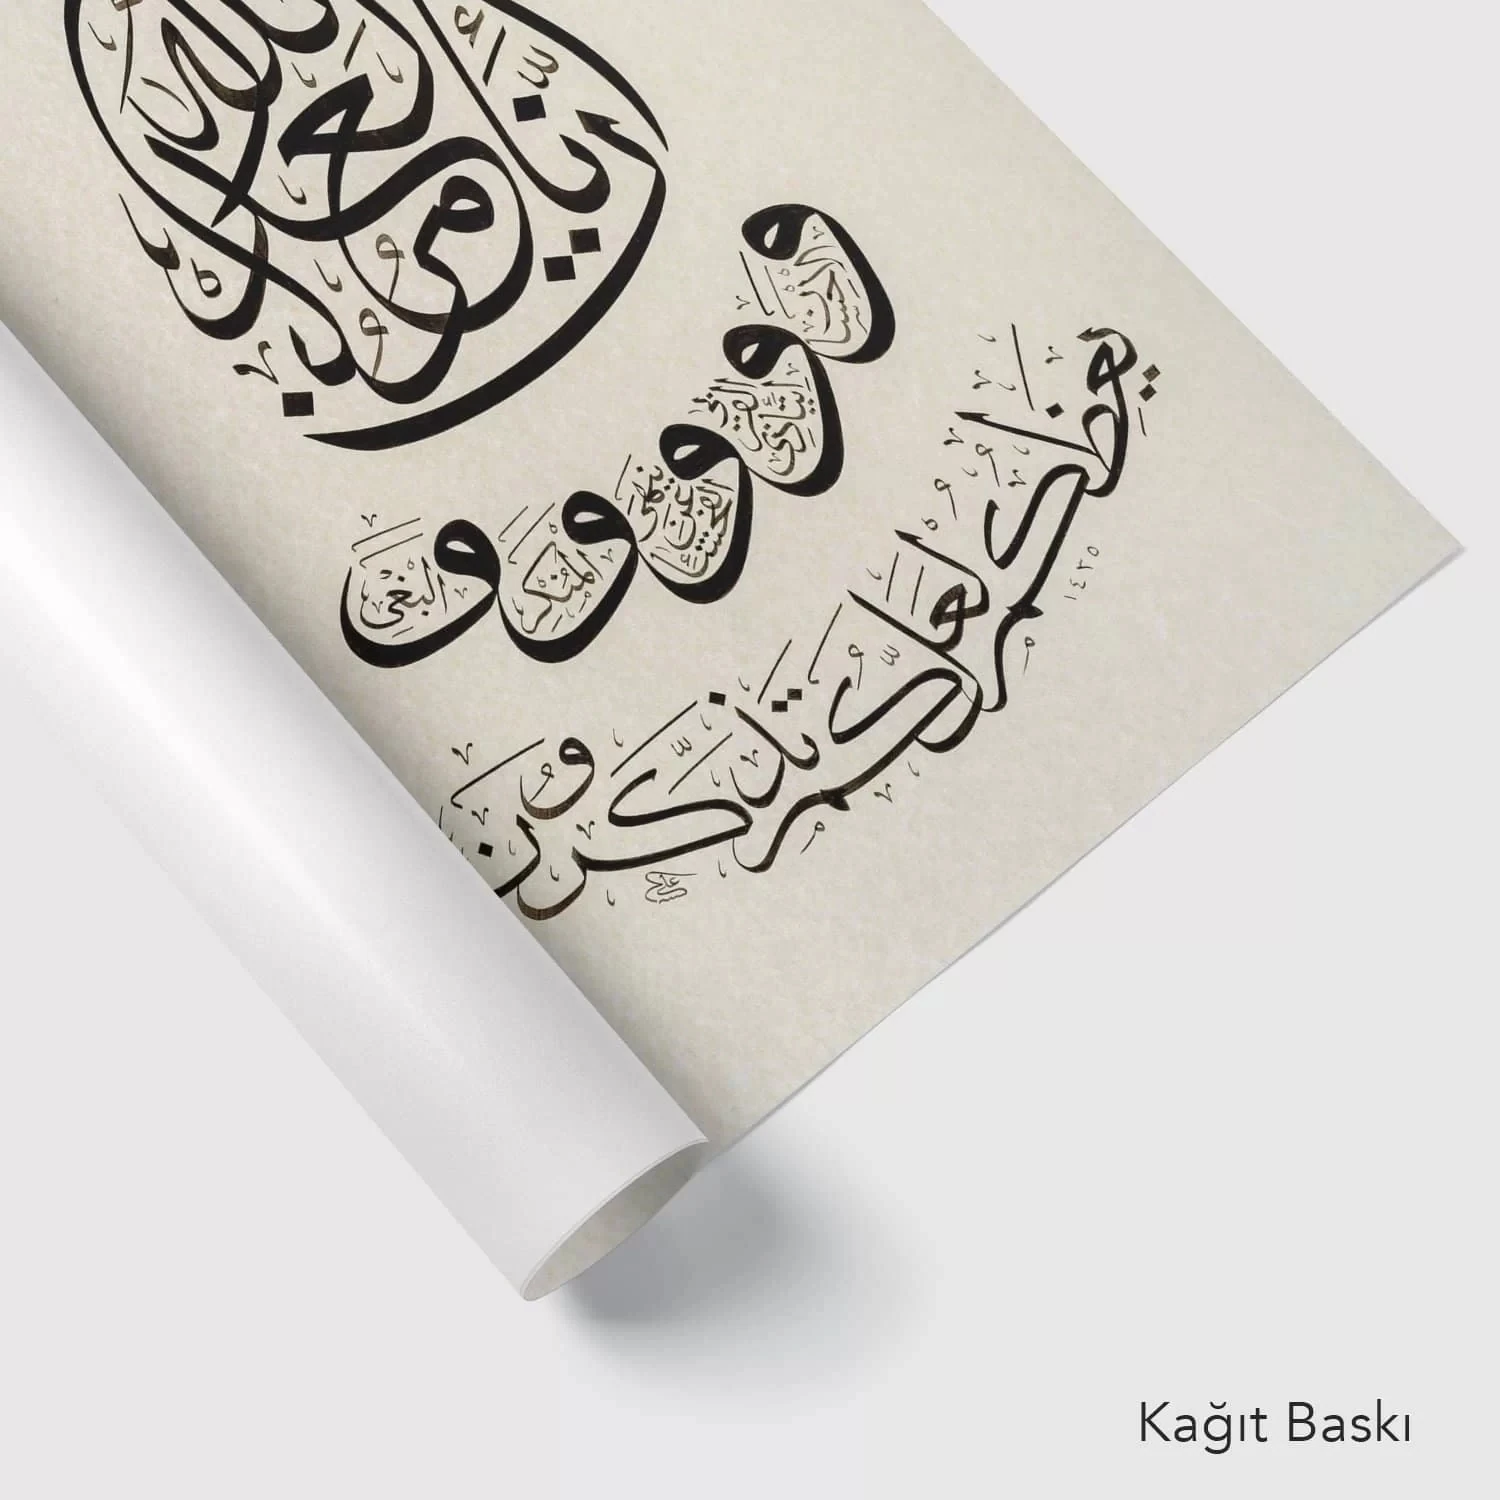 إِنَّ اللّٰهَ يَأْمُرُ بِالْعَدْلِ
وَالْإِحْسَانِ وَإِيتَائِ ذِي الْقُرْبَى وَيَنْهَى عَنِ الْفَحْشَاءِ وَالْمُنْكَرِ وَالْبَغْيِ
يَعِظُكُمْ لَعَلَّكُمْ تَذَكَّرُونَ
١٤٣٥
Kağıt Baskı